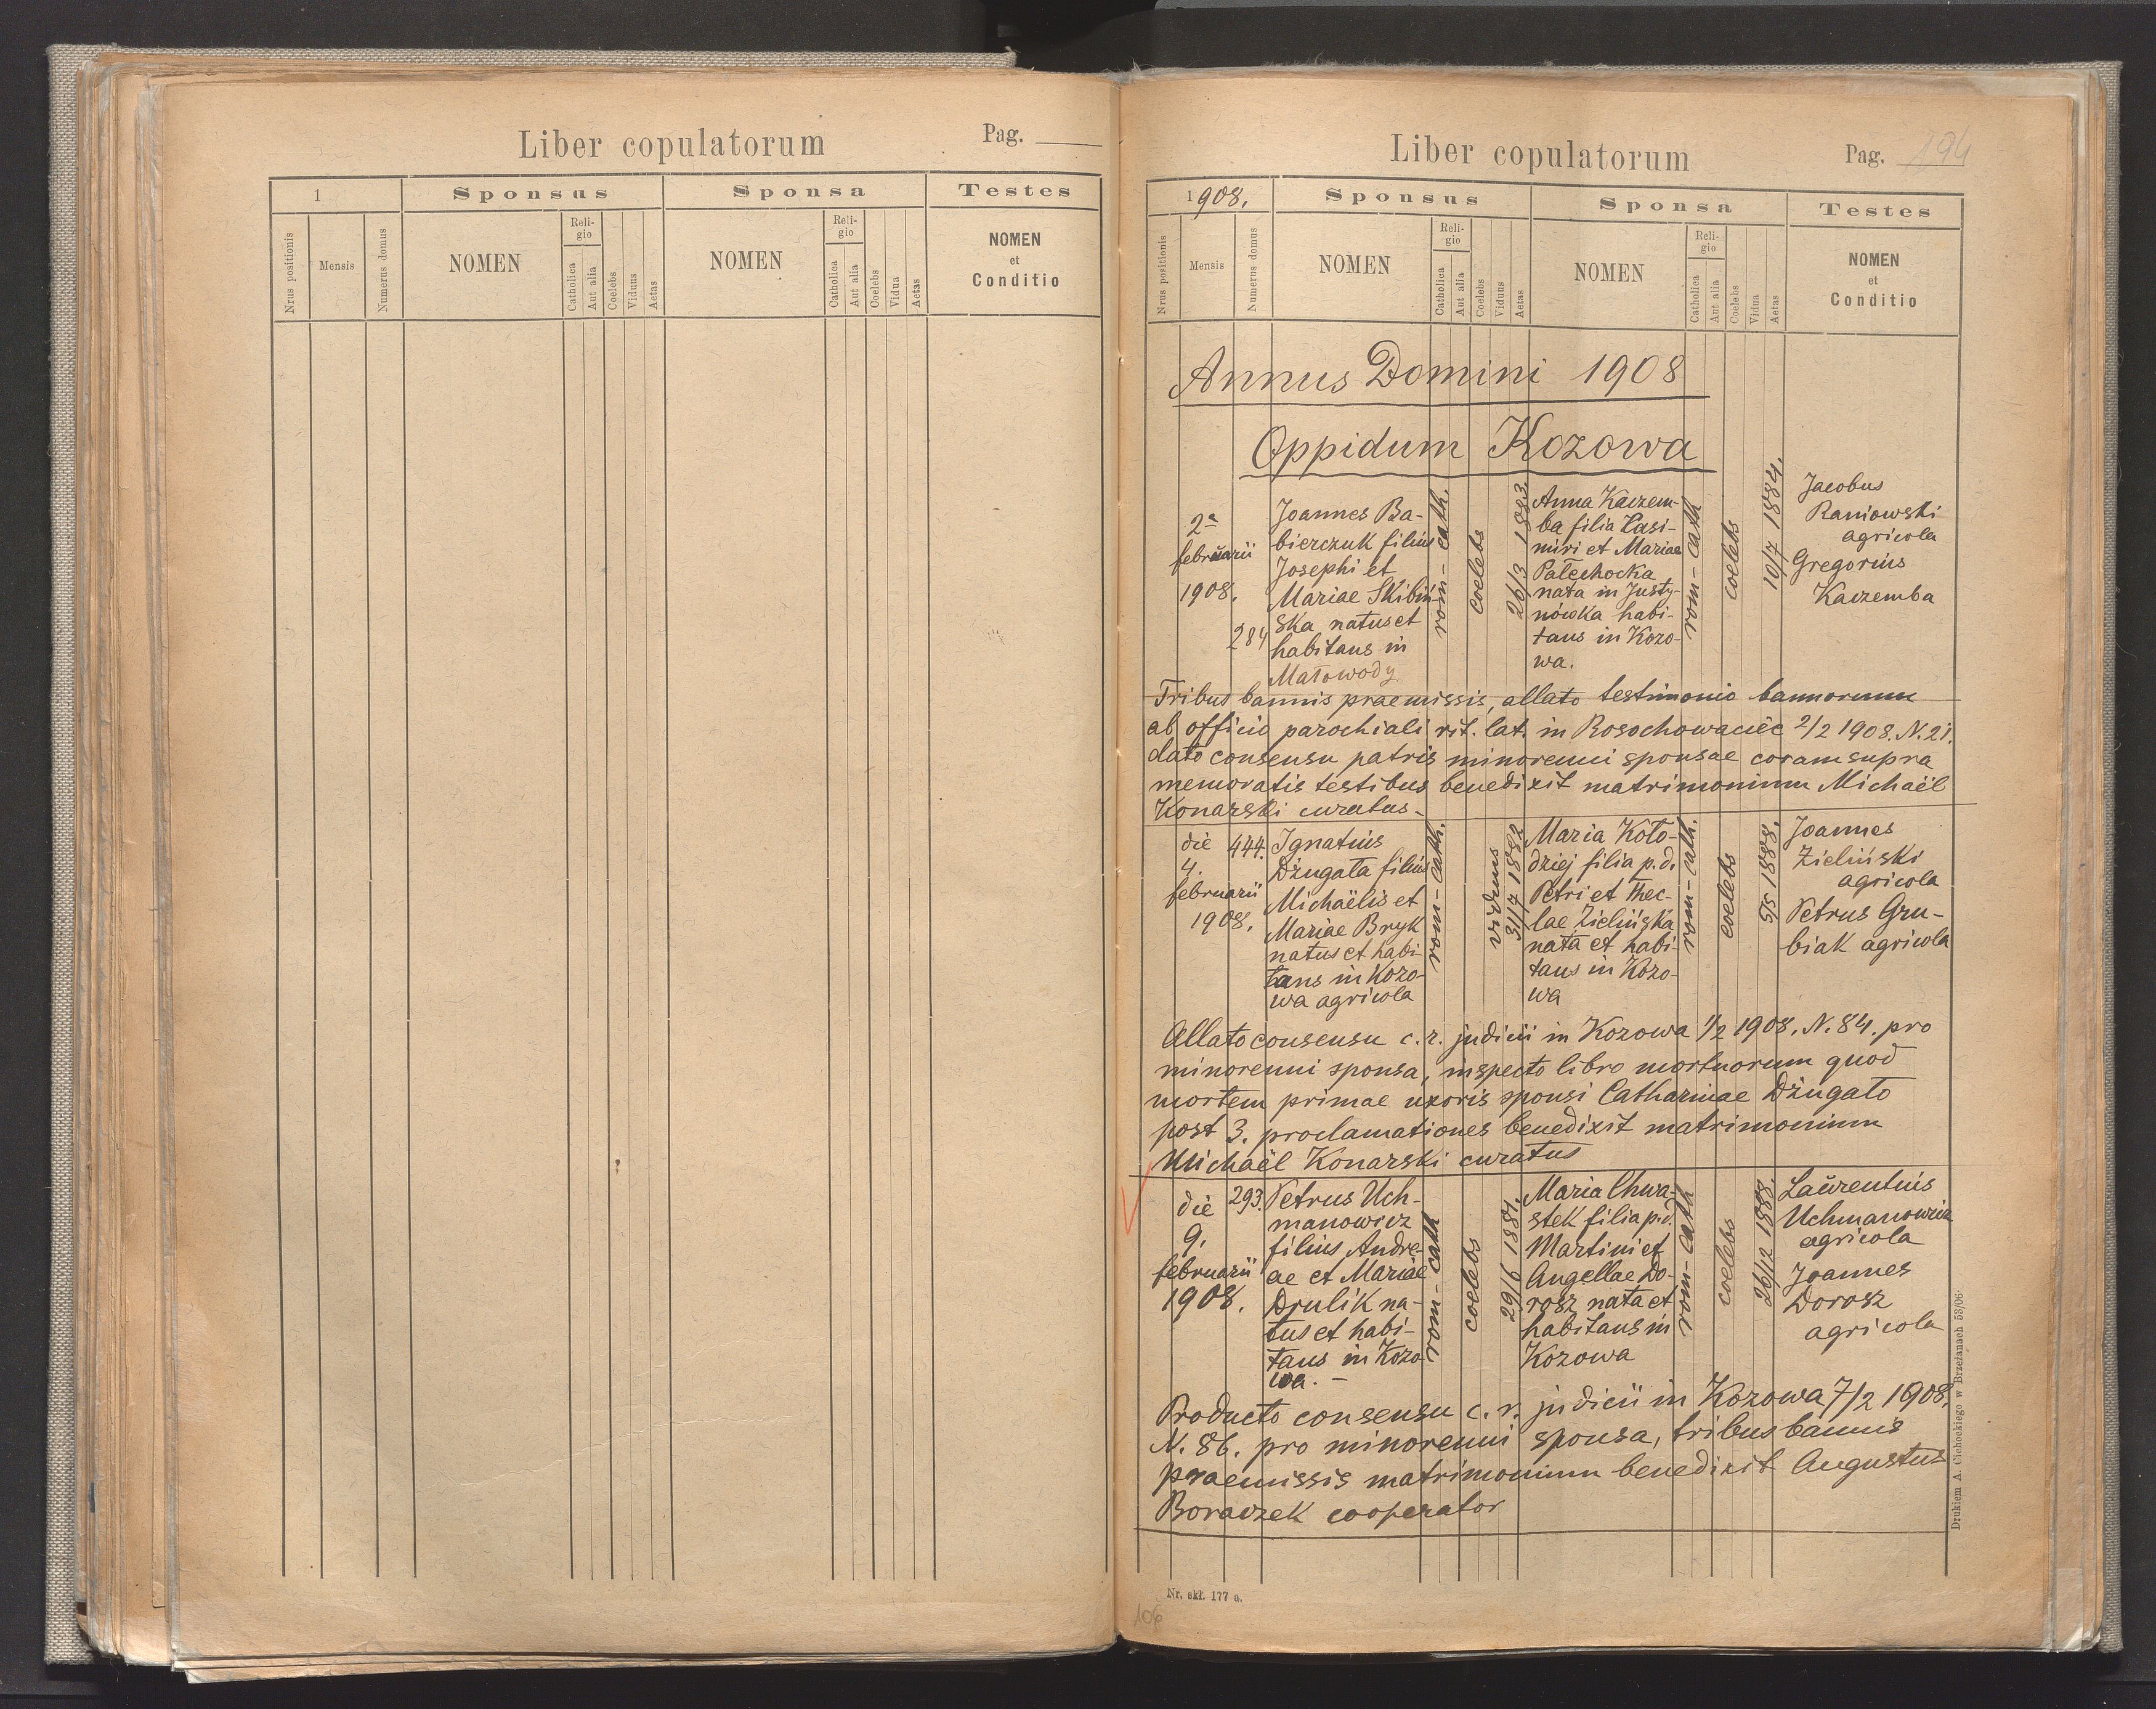 Liber copulatorum
Pag.
1
Sponsus
Sponsa
Testes
Nrus positionis
Mensis
Numerus domus
NOMEN
Reli-
gio
Catholica
Aut alia
Coelebs
Viduus
Aetas
NOMEN
Reli-
gio
Catholica
Aut alia
Coelebs
Vidua
Aetas
NOMEN
et
Conditio
Liber copulatorum
Pag. 194
1908.
Sponsus
Sponsa
Testes
Nrus positionis
Mensis
Numerus domus
NOMEN
Reli-
gio
Catholica
Aut alia
Coelebs
Viduus
Aetas
NOMEN
Reli-
gio
Catholica
Aut alia
Coelebs
Vidua
Aetas
NOMEN
et
Conditio
Annus Domini 1908
Oppidum Kozowa
2a
februarii
1908.
284
Joannes Ba-
bierczuk filius
Josephi et
Mariae Skibiń-
ska natus et
habitans in
Małowody
rom-cath.
coelebs
26/3 1883.
Anna Kaczem-
ba filia Casi-
miri et Mariae
Patechocka
nata in Justy-
nówka habi-
tans in Kozo-
wa.
rom-cath
coelebs
10/7 1884.
Jacobus
Raniowski
agricola
Gregorius
Kaczemba
Tribus bannis praemissis, allato testimonio bannorum
ab officio parochiali rit. lat. in Rosochowaciec 2/2 1908. N. 21.
dato consensu patris minorenni sponsae coram supra
memoratis testibus benedixit matrimonium Michaël
Konarski curatus-
die
4.
februarii
1908.
444.
Ignatius
Dżugała filius
Michaëlis et
Mariae Bryk
natus et habi-
tans in Kozo-
wa agricola
rom-cath.
viduus
31/7 1882
Maria Koło-
dziej filia p.d.
Petri et Thec-
lae Zielińska
nata et habi-
tans in Kozo-
wa
rom-cath.
coelebs
5/5 1888.
Joannes
Zieliński
agricola
Petrus Gru-
biak agricola
Allato consensu c.r. judicii in Kozowa 1/2 1908. N. 84. pro
minorenni sponsa, inspecto libro mortuorum quod
mortem primae uxoris sponsi Catharinae Dżugało
post 3. proclamationes benedixit matrimonium
Michaël Konarski curatus
die
9.
februarii
1908.
293.
Petrus Uch-
manowicz
filius Andre-
ae et Mariae
Drulik na-
tus et habi-
tans in Kozo-
wa. -
rom-cath
coelebs
29/6 1881.
Maria Chwa-
stek filia p.d.
Martini et
Angellae Do-
rosz nata et
habitans in
Kozowa
rom-cath
coelebs
26/12 1888.
Laurentius
Uchmanowicz
agricola
Joannes
Dorosz
agricola
Producto consensu c.r. judicii in Kozowa 7/2 1908.
N. 86. pro minorenni sponsa, tribus bannis
praemissis matrimonium benedixit Augustus
Boraczek cooperator
Drukiem A. Cichockiego w Brzeżanach 53/06
Nr. skł. 177 a.
106